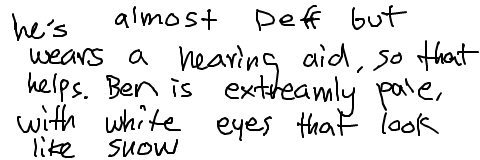 he's almost Deff but
wears a hearing aid, so that
helps. Ben is extreamly pale,
with white eyes that look
like snow